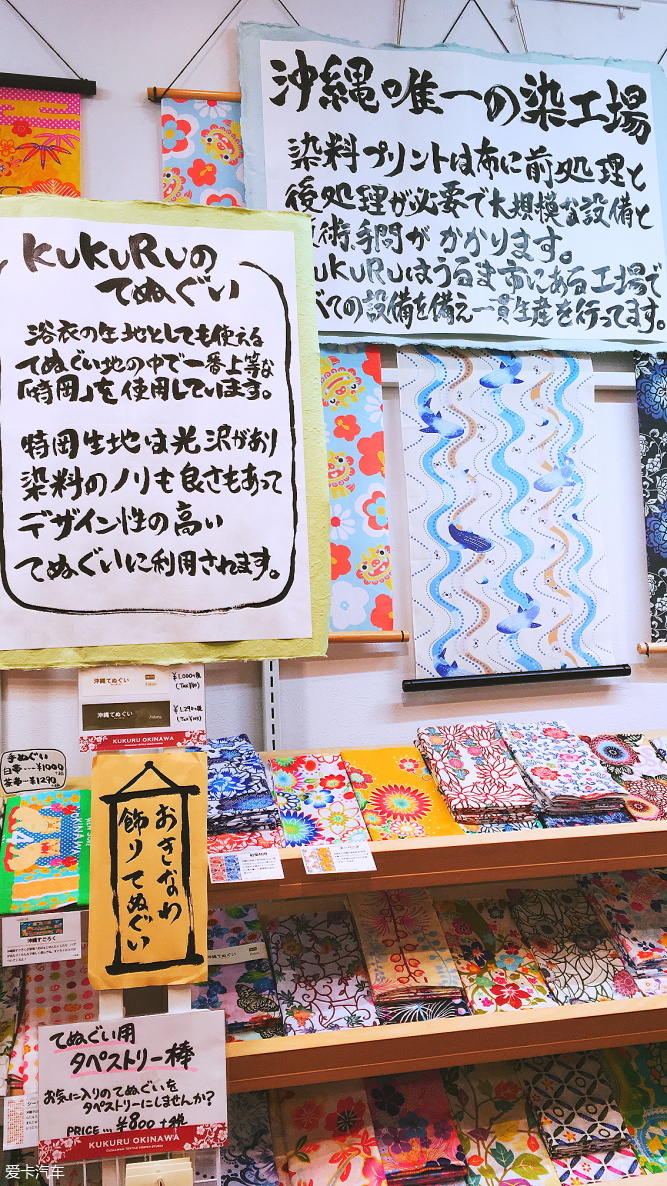 沖縄唯一の染工場
染料プリントは布に前処理と
後処理が必要で大規模な設備と
術、手間がかかります。
KUKURUはうるま市にある工場で
べての設備を備え一貫生産を行ってます。
KUKURUの
てぬぐい
浴衣の生地としても使える
てぬぐい地の中で一番上等な
「特岡」を使用しています。
特岡生地は光沢があり
染料のノリも良さもあって
デザイン性の高い
てぬぐいに利用されます。
沖縄てぬぐい
¥1,000+税
沖縄てぬぐい
¥1,290+税
KUKURU OKINAWA
手ぬぐい
白帯…¥1000
茶帯…¥1290
おきなわ
飾りてぬぐい
沖縄すごろく
沖縄てぬぐい
てぬぐい用
タペストリー棒
お気に入りのてぬぐいを
タペストリーにしませんか?
PRICE... ¥800+税
KUKURU OKINAWA
爱卡汽车